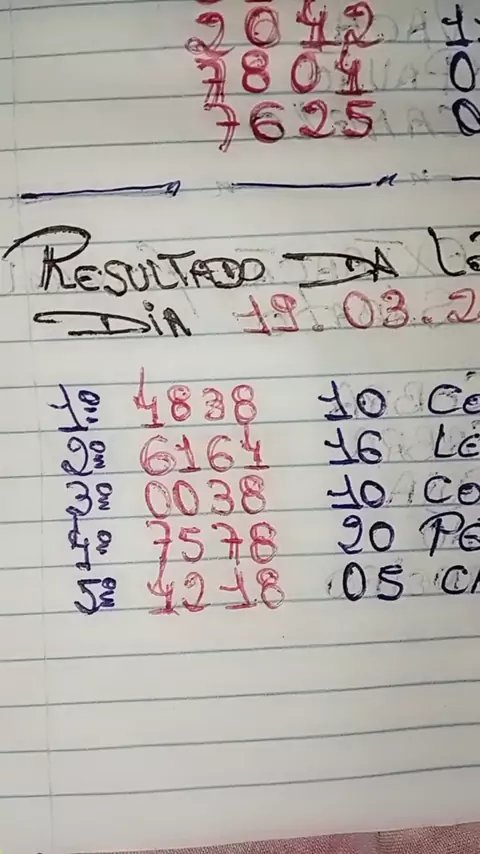 2042 1
7804 0
7625 0
RESULTADO DA L
DIA 19.03.2
1º 4838 10 CO
2º 6164 16 LE
3º 0038 10 CO
4º 7578 20 PE
5º 4218 05 CA